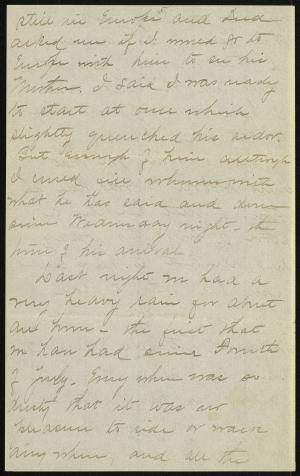 still in Europe" and Fred
asked me if I would go to
Europe with him to see his
Mother. I said I was ready
to start at once which
slightly quenched his ardor.
But enough of him although
I could fill volumes with
what he has said and done
since Wednesday night - the
time of his arrival
Last night we had a
very heavy rain for about
an hour - the first that
we have had since Fourth
of July. Every where was so
dusty that it was no
pleasure to ride or walk
any where, and all the